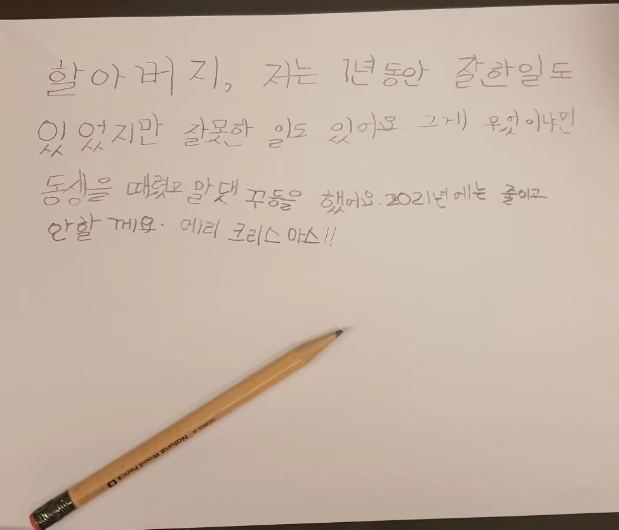 할아버지, 저는 1년동안 잘한일도
있었지만 잘못한 일도 있어요. 그게 무엇이냐면
동생을 때렸고 말댓꾸들을 했어요. 2021년에는 줄이고
안할께요. 메리 크리스마스!!
Natural Wood Pencil